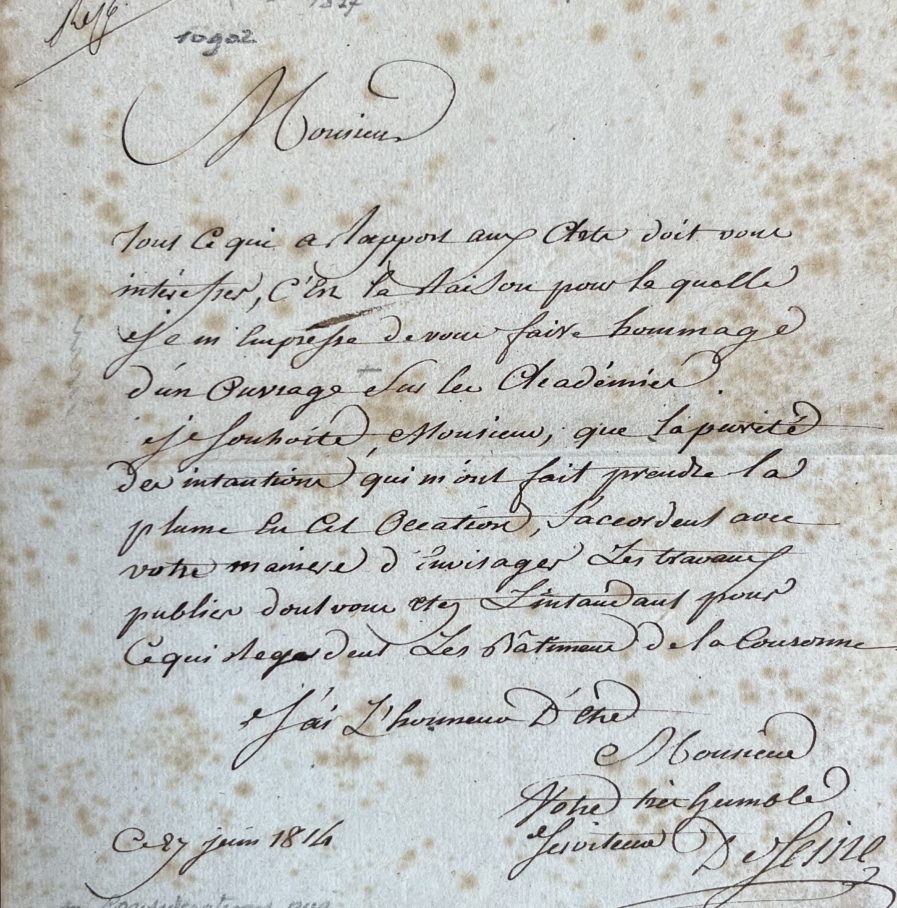 Rep
1827
10902
Monsieur
Tout Ce qui a Rapport aux Arts doit vous
intéresser, C'Est la Raison pour la quelle
Je m'Empresse de vous faire hommage
d'un Ouvrage Sur les Académies.
Je souhaite Monsieur, que la pureté
des intantions qui m'ont fait prendre la
plume En Cet Occation, S'accordent avec
votre maniere d'Envisager Les travaux
publics dont vous etes L'intandant pour
Ce qui Regardent Les Bâtiments de la Couronne
J'ai L'honneur D'être
Monsieur
Votre très humble
Serviteur DeSeine
Ce 27 juin 1814
Considerations sur